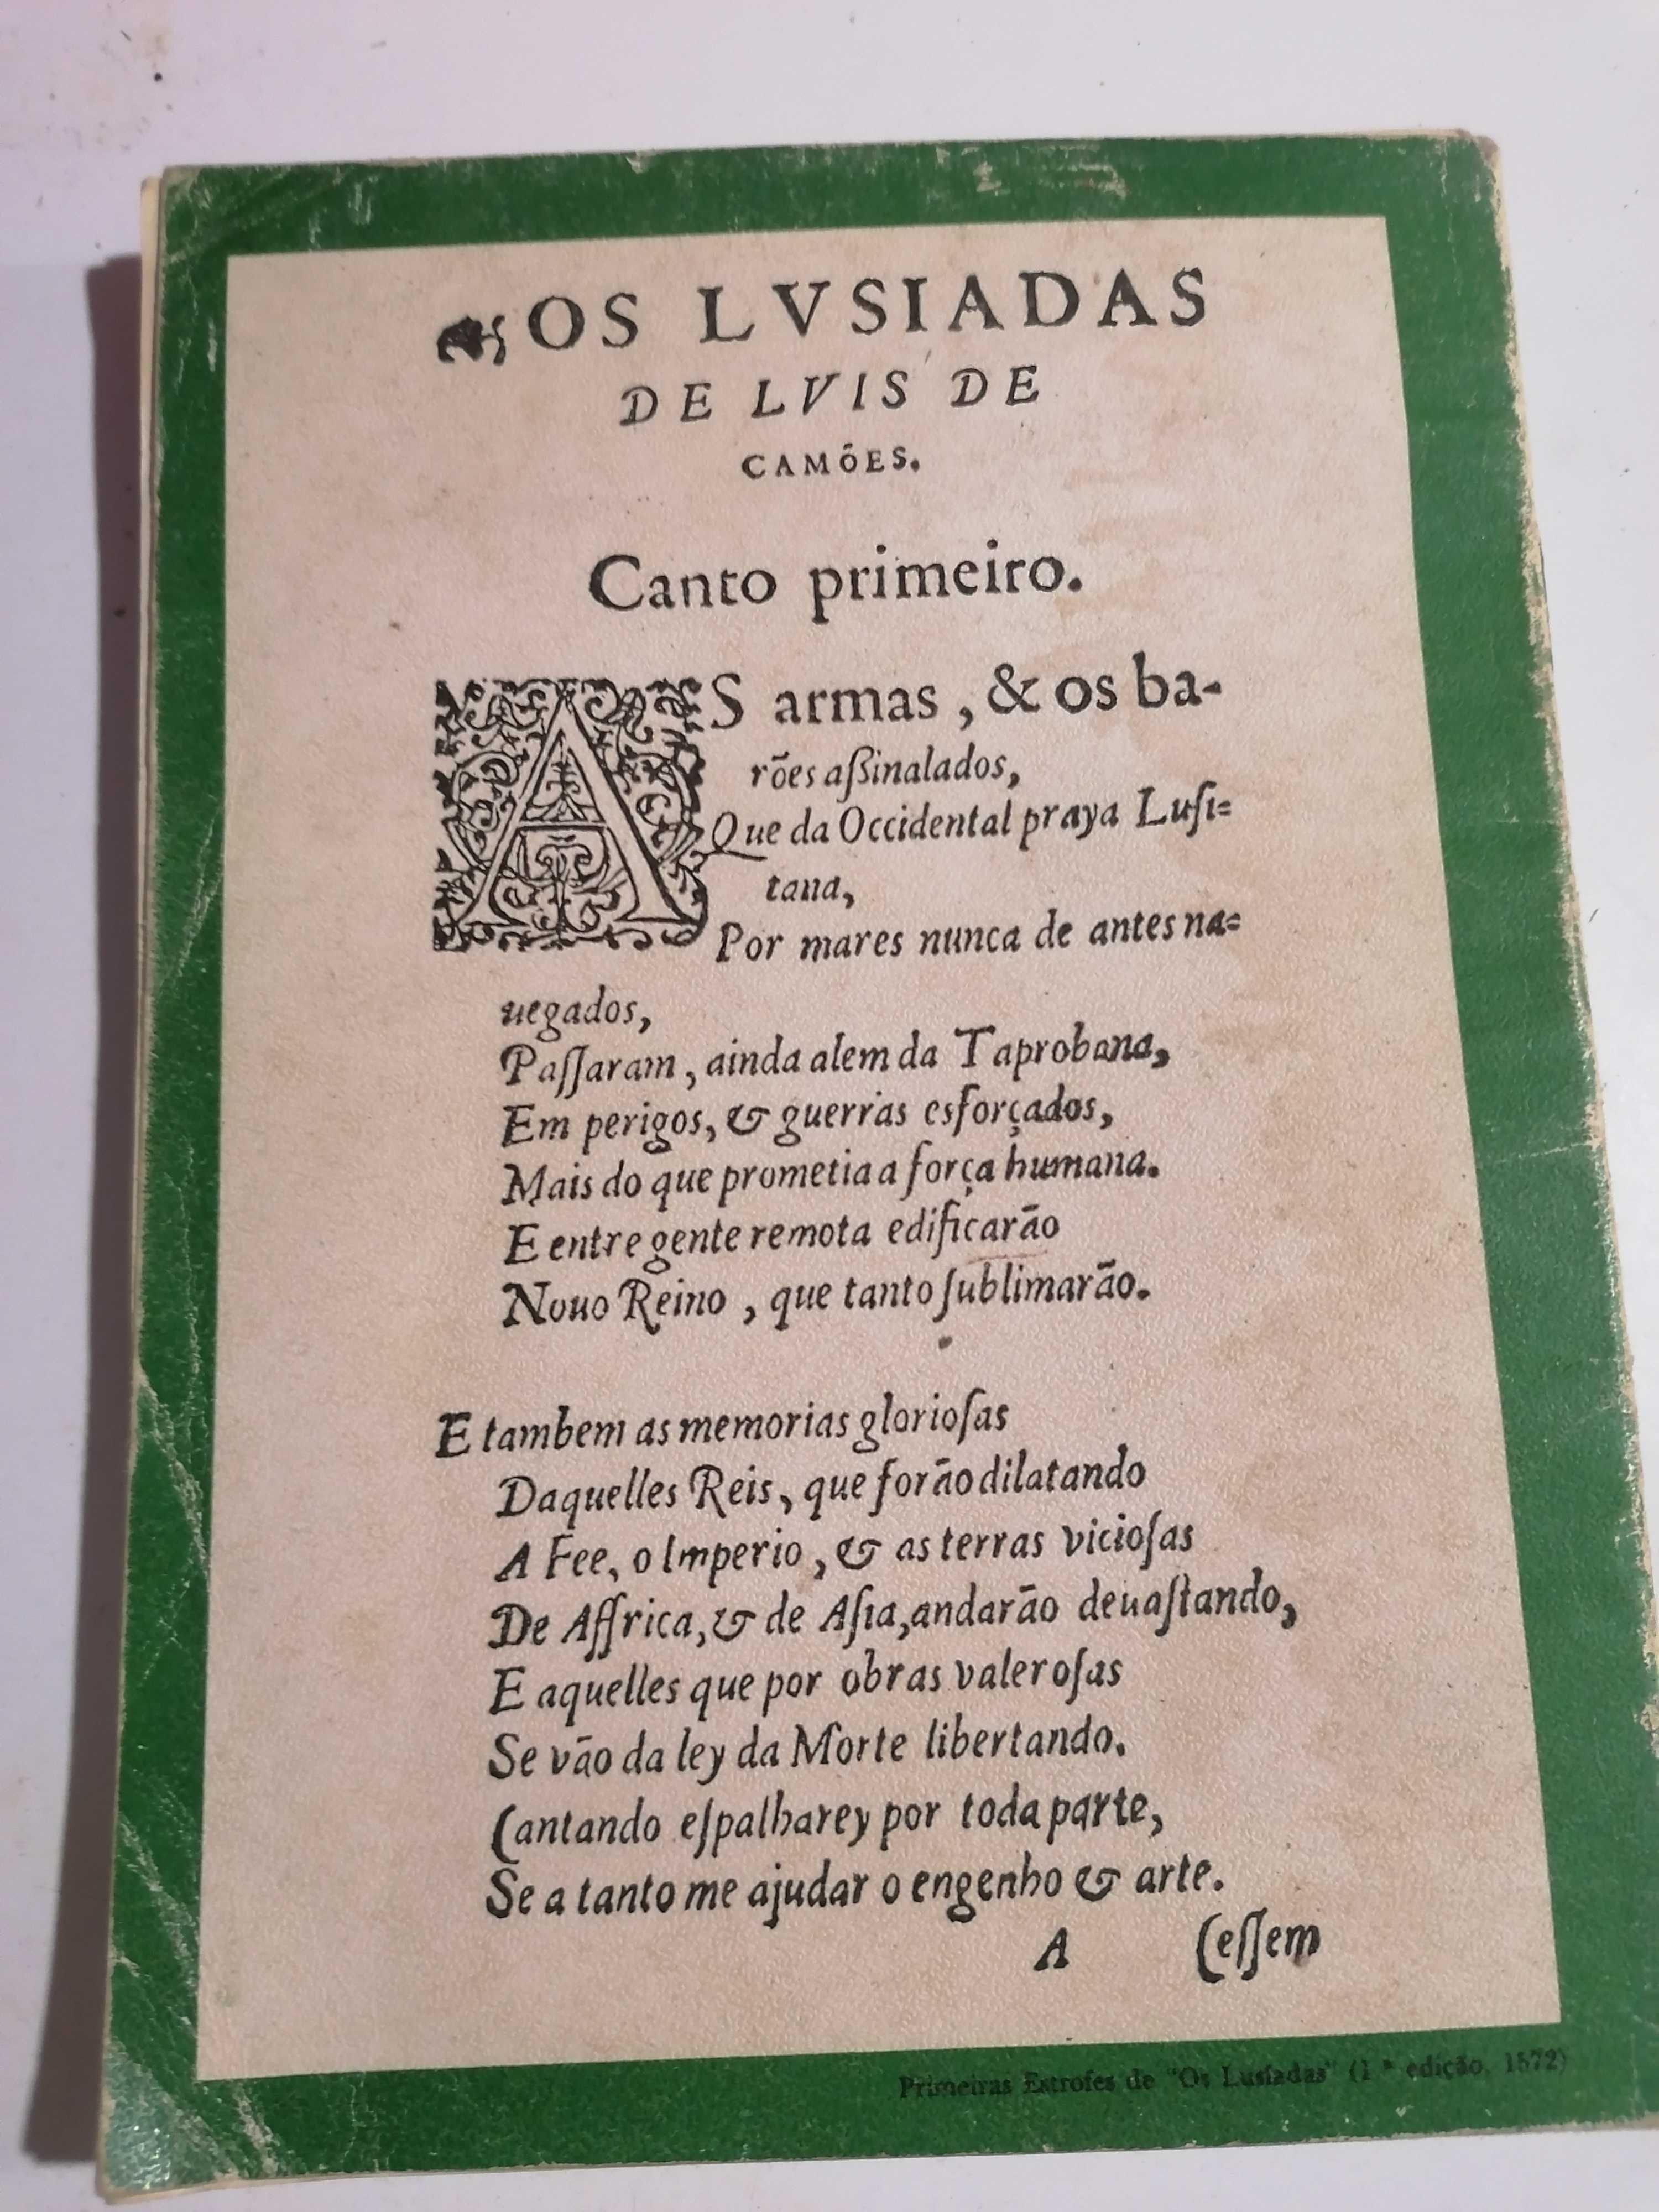 OS LVSIADAS
DE LVIS DE
CAMÕES.
Canto primeiro.
AS armas, & os ba-
rões aßinalados,
Que da Occidental praya Luſi-
tana,
Por mares nunca de antes na-
uegados,
Paſſaram, ainda alem da Taprobana,
Em perigos, & guerras esforçados,
Mais do que prometia a força humana.
E entre gente remota edificarão
Nouo Reino, que tanto ſublimarão.
E tambem as memorias glorioſas
Daquelles Reis, que forão dilatando
A Fee, o Imperio, & as terras vicioſas
De Affrica, & de Aſia, andarão deuaſtando,
E aquelles que por obras valeroſas
Se vão da ley da Morte libertando.
Cantando eſpalharey por toda parte,
Se a tanto me ajudar o engenho & arte.
A Ceſſem
Primeiras Estrofes de "Os Lusíadas" (1.ª edição, 1572)